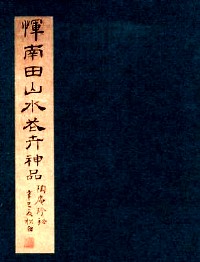 惲南田山水花卉神品
陶庵珍秘